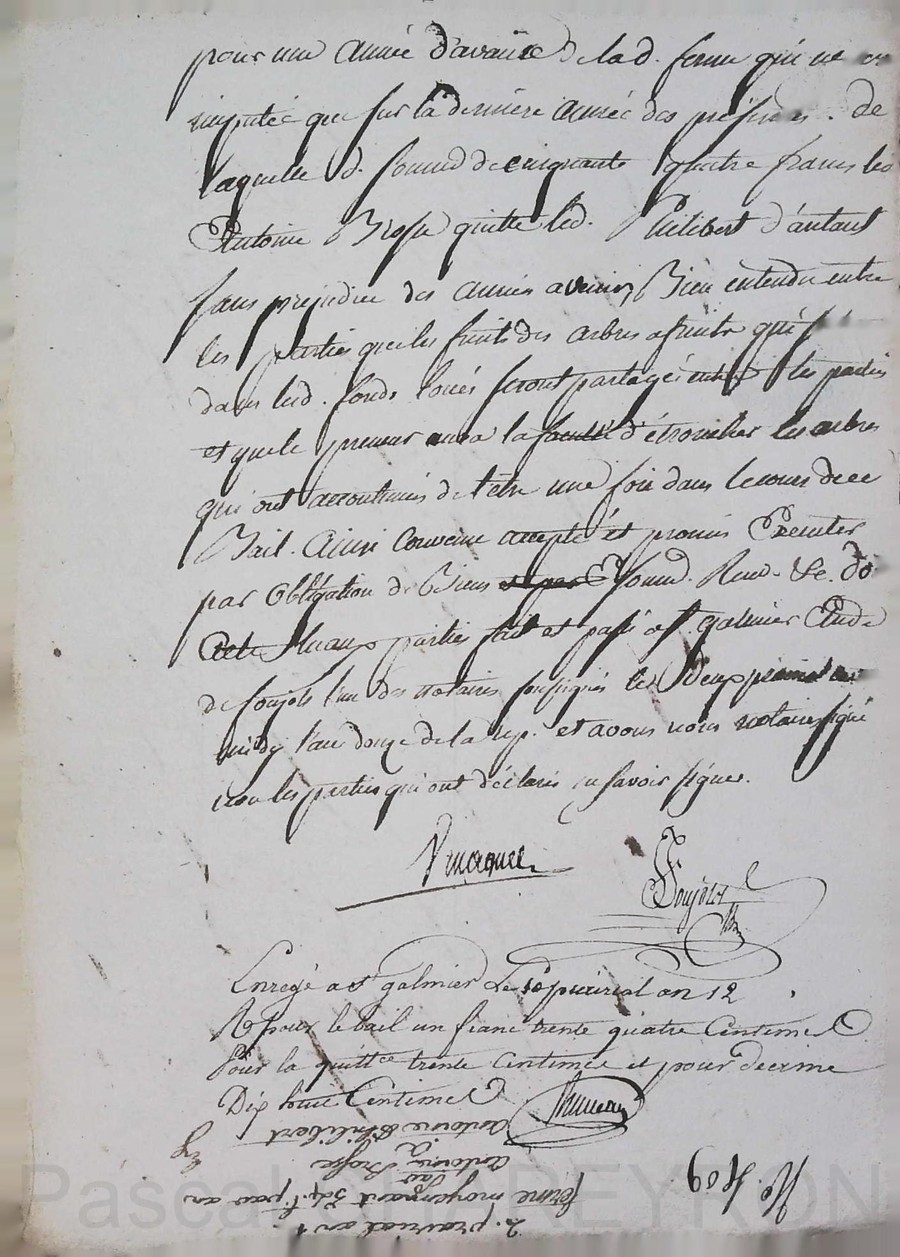 pour une année d'avance de lad. ferme qui ne
imputée que sur la derniere année des présentes. De
laquelle d. somme de cinquante quatre francs led
Antoine Brosse quitte led. Philibert d'autant
sans prejudice des années avenir, Bien entendu entre
les parties que les fruits des arbres afruits qui
dans led. fonds loués seront partagés entre les parties
et que le preneur aura la faculté d'étroncher les arbres
qui ont accoutumés de l'etre une fois dans le cours de ce
Bail. Ainsi convenu accepté et promis Executer
par obligation de Biens Soumd. Rend. &c. do
acte aux parties fait et passé a st. galmier Etude
de soujols l'un des notaires soussignés le deux prairial
midy l'an douze de la rep. et avons nous notaires signé
non les parties qui ont déclaré ne savoir signer.
Soujols
Enregé a st galmier Le 10 prairial an 12
R pour le bail un franc trente quatre Centimes
Pour la quittce trente centimes et pour decime
Dix huit Centimes
No. 409
2. prairial an
ferme moyennant 54 f. par an
par
Antoine Brosse
a
antoine Philibert
Pascal CHAREYRON